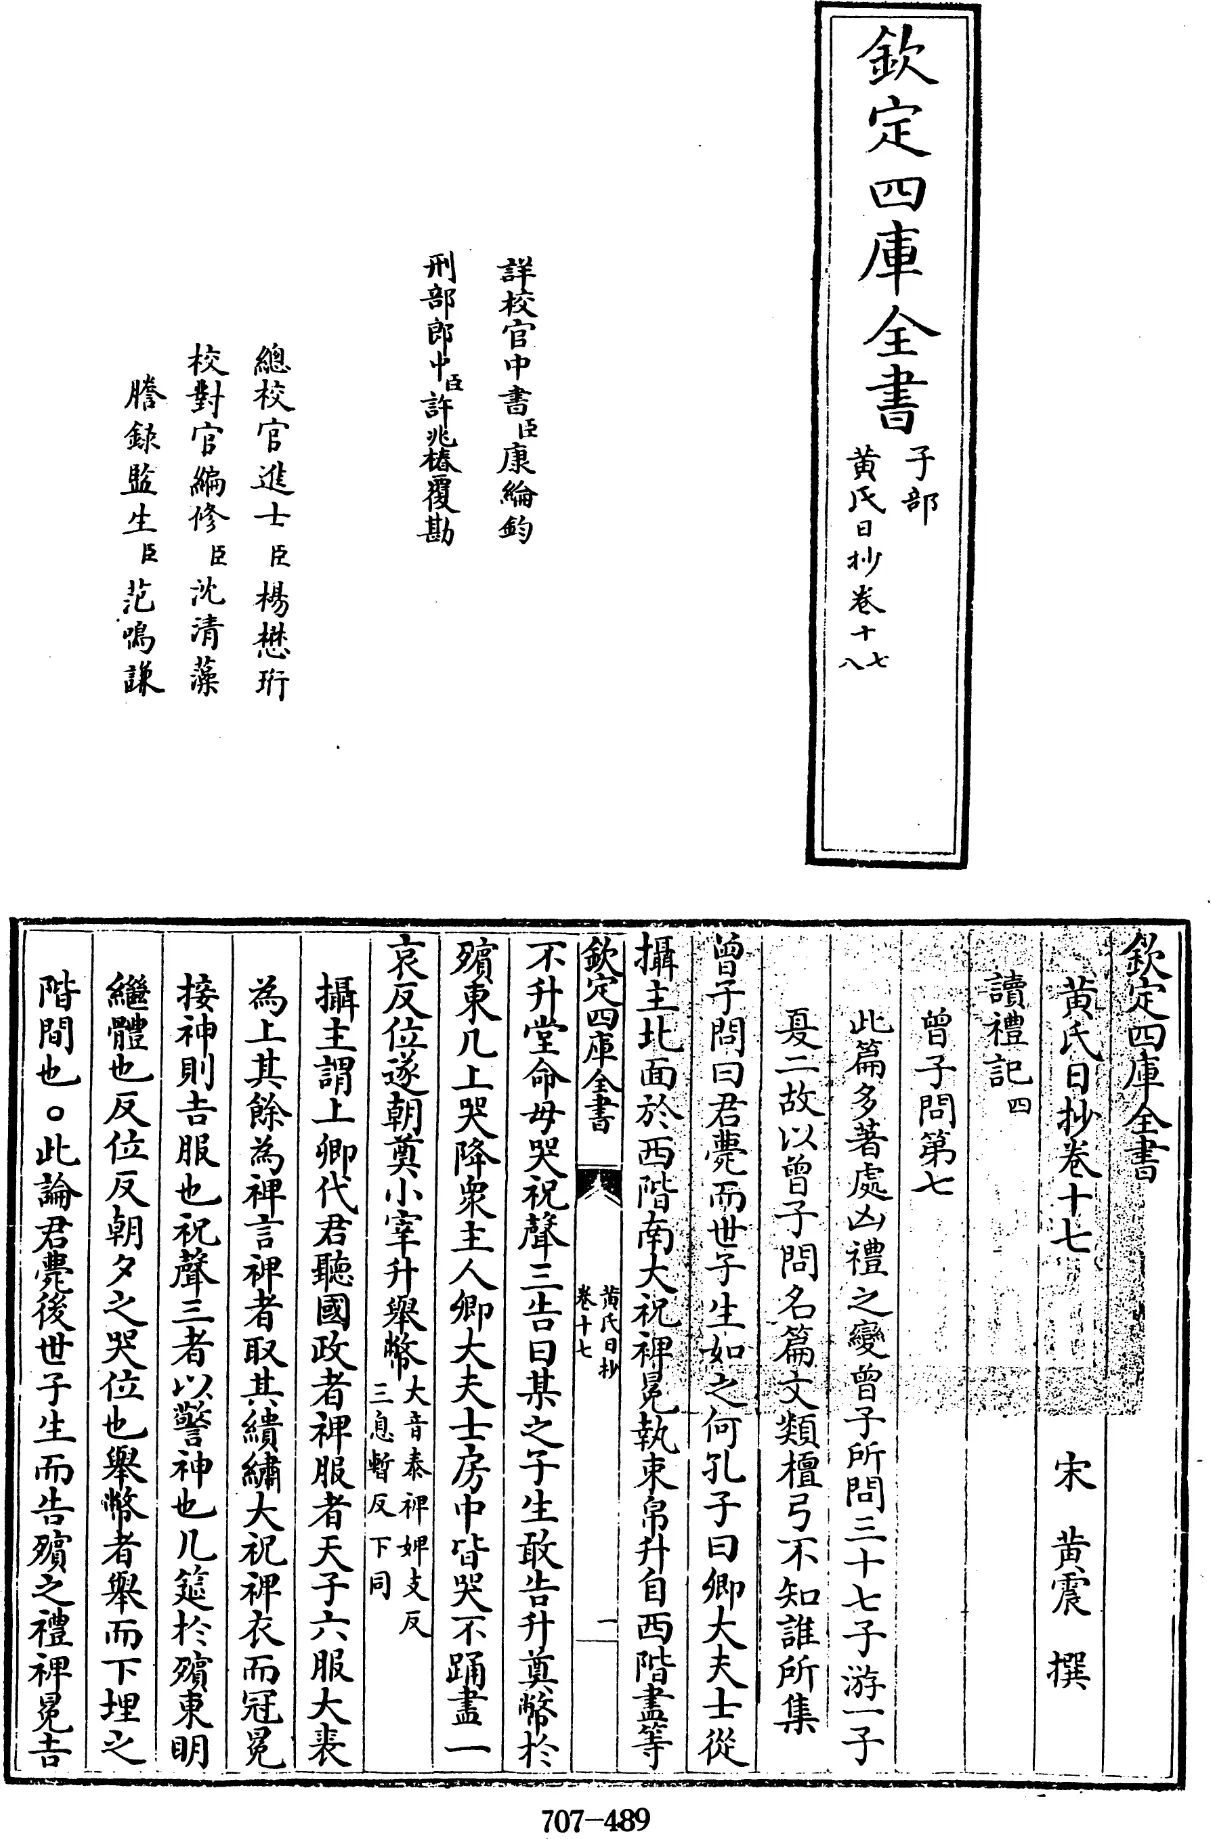 欽定四庫全書
子部
黃氏日抄卷十七
八
詳校官中書臣康綸鈞
刑部郎中臣許兆椿覆勘
總校官進士臣楊懋珩
校對官編修臣沈清藻
謄錄監生臣范鳴謙
欽定四庫全書
黃氏日抄卷十七
宋 黃震 撰
讀禮記四
曾子問第七
此篇多著處凶禮之變曾子所問三十七子游一子
夏二故以曾子問名篇文類檀弓不知誰所集
曾子問曰君薨而世子生如之何孔子曰卿大夫士從
攝主北面於西階南大祝裨冕執束帛升自西階盡等
欽定四庫全書
黃氏日抄
卷十七
一
不升堂命毋哭祝聲三告曰某之子生敢告升奠幣於
殯東几上哭降衆主人卿大夫士房中皆哭不踊盡一
哀反位遂朝奠小宰升舉幣大音泰裨婢支反
三息暫反下同
攝主謂上卿代君聽國政者裨服者天子六服大裘
為上其餘為裨言裨者取其繢繡大祝裨衣而冠冕
接神則吉服也祝聲三者以警神也几筵於殯東明
繼體也反位反朝夕之哭位也舉幣者舉而下埋之
階間也○此論君薨後世子生而告殯之禮裨冕吉
707-489